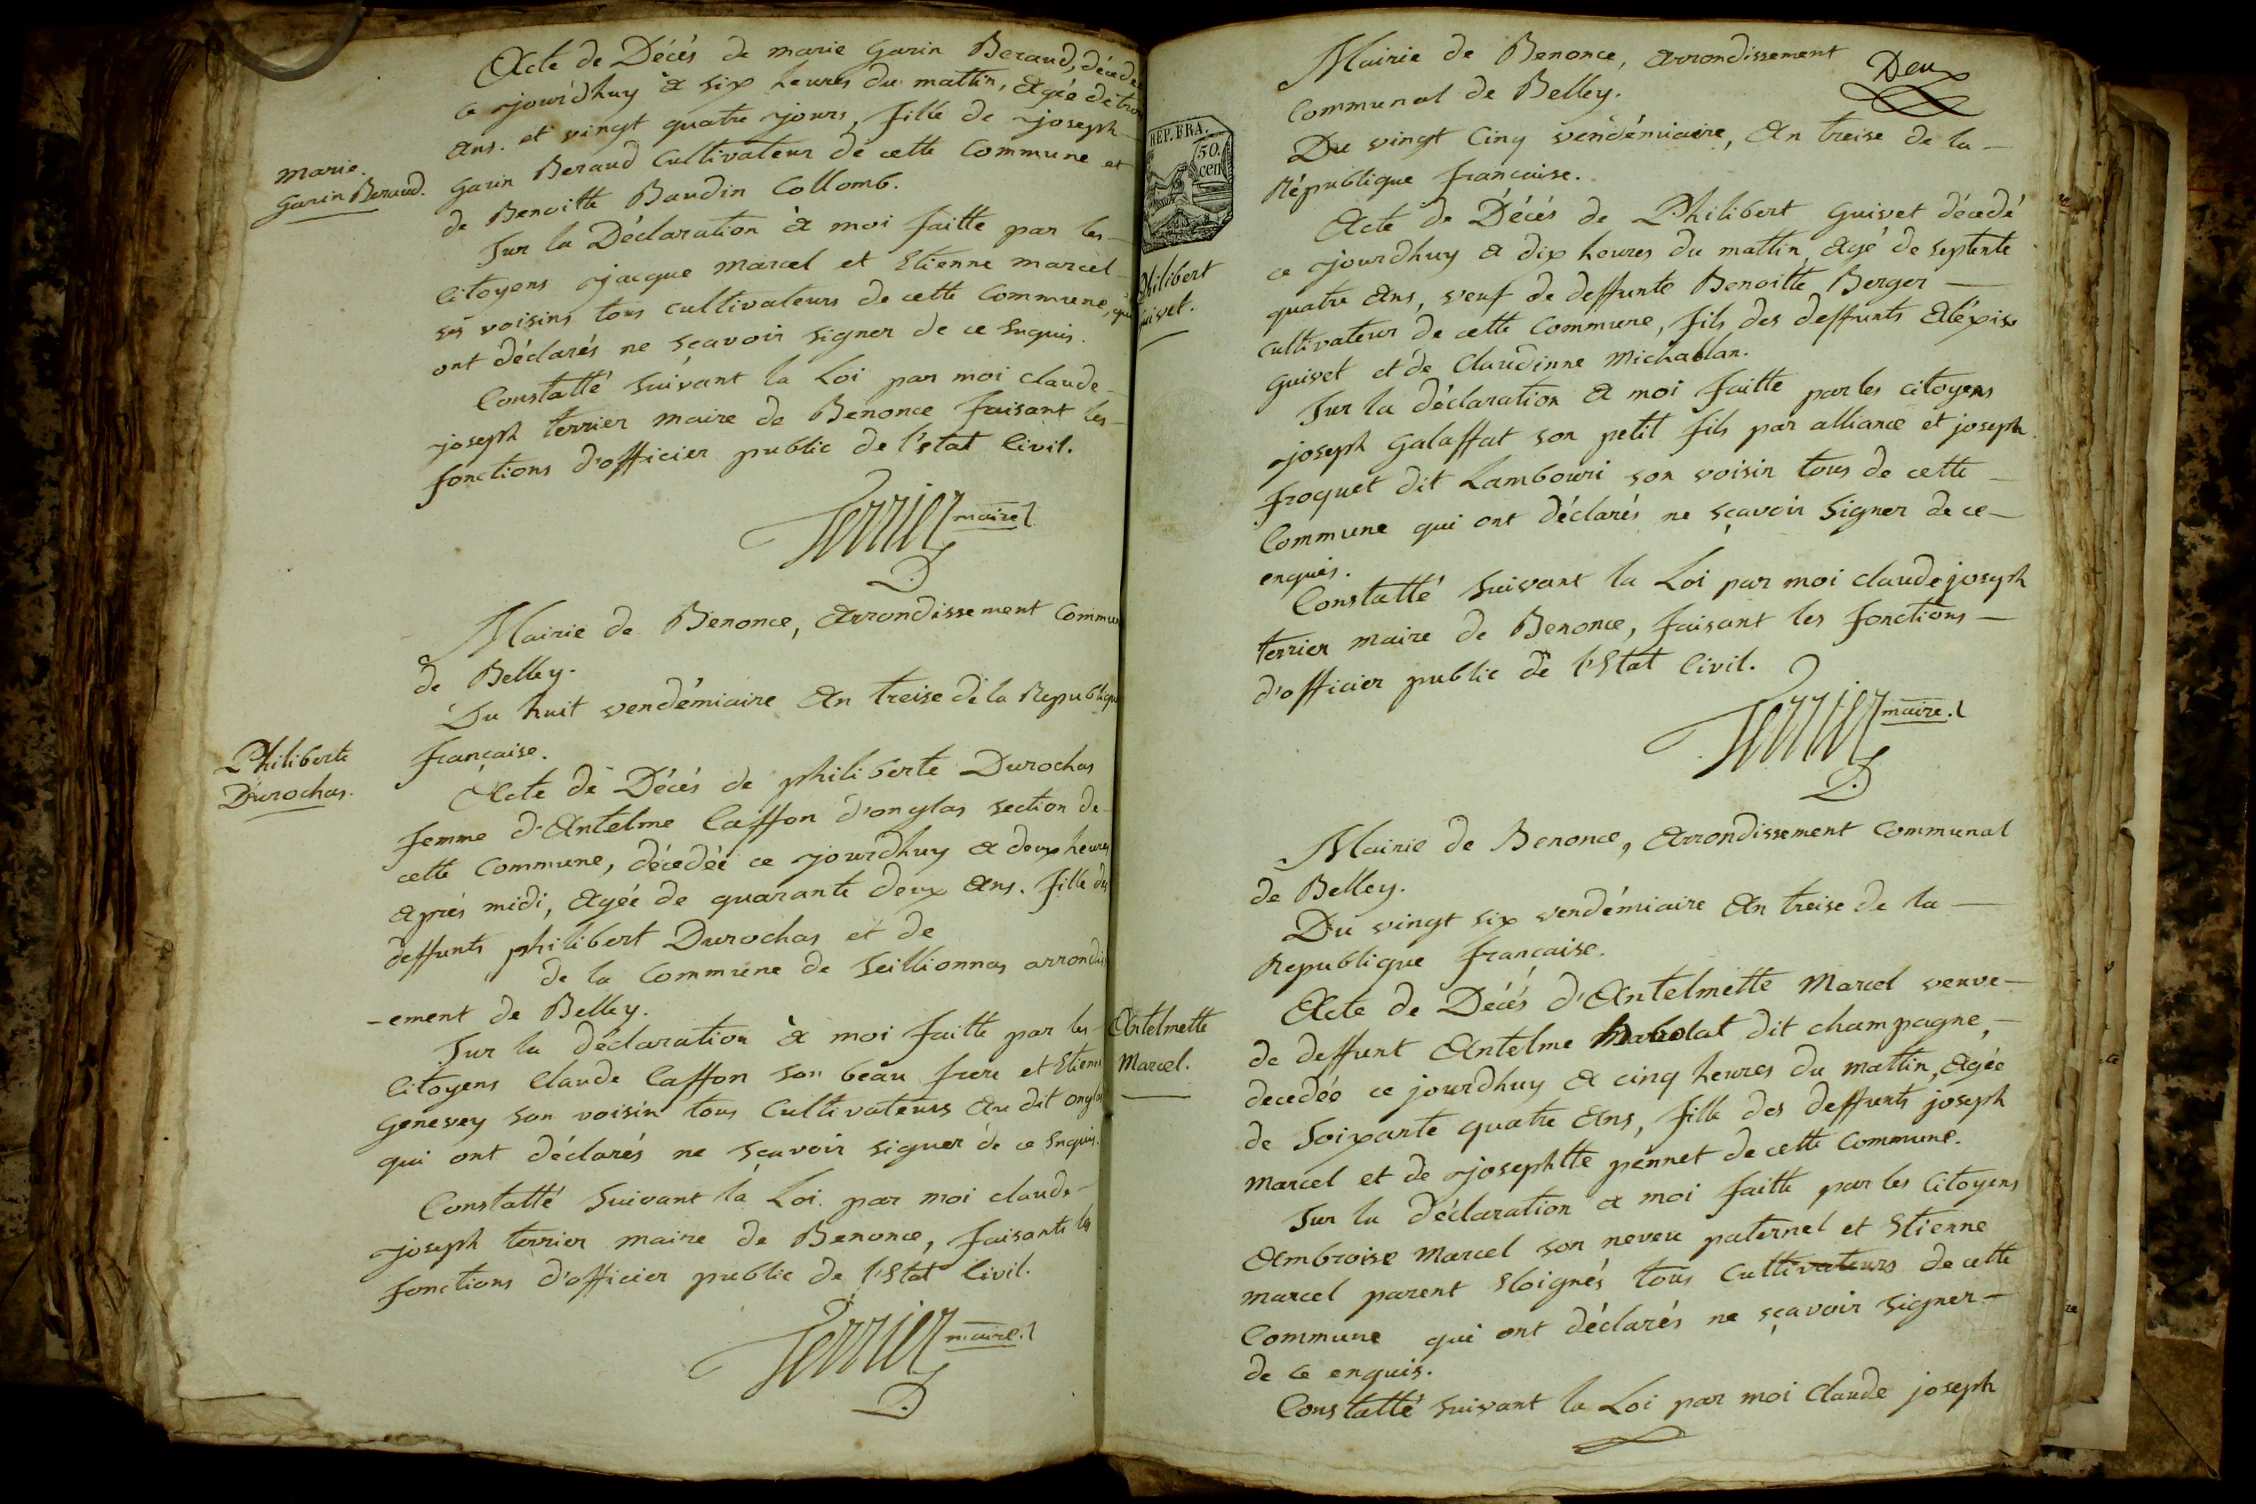 Acte de Décés de marie Garin Beraud, décédé
ce jourd'huy à six heures du mattin, agée de trois
ans. et vingt quatre jours, fille de joseph
marie.
Garin Beraud.
Garin Beraud Cultivateur de cette Commune et
de Benoitte Baudin Collomb.
Sur la Déclaration à moi faitte par les
Citoyens jacque marcel et Etienne marcel
ses voisins tous cultivateurs de cette Commune, qui
ont déclarés ne sçavoir signer de ce Enquis.
Constatté suivant la Loi par moi claude
joseph terrier maire de Benonce faisant les
fonctions d'officier public de l'etat Civil.
Terrier maire
Mairie de Benonce, arrondissement Commun
de Belley.
Du huit vendémiaire an treise de la Republique
française.
Philiberte
Durochas.
Acte de Décés de philiberte Durochas
femme d'Antelme Caffon d'onglas section de
cette Commune, décedée ce jourdhuy a deux heures
aprés midi, agée de quarante deux ans. fille des
deffunts philibert Durochas et de
de la Commune de Seillionnas arrondis
-ement de Belley.
Sur la déclaration à moi faitte par les
Citoyens Claude Caffon son beau frere et Etienne
Genevey son voisin tous Cultivateurs au dit onglas
qui ont déclarés ne sçavoir signer de ce Enquis.
Constatté suivant la Loi par moi claude
joseph terrier maire de Benonce, faisants les
fonctions d'officier public de l'Etat Civil.
Terrier maire.
Deux
Mairie de Benonce, arrondissement
Communal de Belley.
Du vingt Cinq vendémiaire, an treise de la
République francaise.
REP. FRA.
50.
cen
Philibert
Guivet.
Acte de Décés de Philibert Guivet décedé
ce jourdhuy a dix heures du mattin, agé de septente
quatre ans, veuf de deffunte Benoitte Berger
cultivateur de cette Commune, fils des deffunts Aléxis
Guivet et de Claudinne Michallan.
Sur la déclaration a moi faitte par les citoyens
joseph Galaffat son petit fils par alliance et joseph
froquet dit Lambouri son voisin tous de cette
Commune qui ont déclarés ne sçavoir Signer de ce
enquis.
Constatté suivant la Loi par moi claude joseph
terrier maire de Benonce, faisant les fonctions
d'officier public de l'Etat Civil.
Terrier maire.
Mairie de Benonce, arrondissement Communal
de Belley.
Du vingt six vendémiaire an treise de la
Republique francaise.
Antelmette
Marcel.
Acte de Décés d'Antelmette Marcel veuve
de deffunt Antelme dit champagne,
decedée ce jourdhuy a cinq heures du mattin, agée
de Soixante quatre ans, fille des deffunts joseph
marcel et de josephtte pennet de cette Commune.
Sur la déclaration a moi faitte par les Citoyens
Ambroise Marcel son neveu paternel et Etienne
marcel parent Eloignés tous Cultivateurs de cette
Commune qui ont déclarés ne sçavoir signer
de ce enquis.
Constatté suivant la Loi par moi Claude joseph